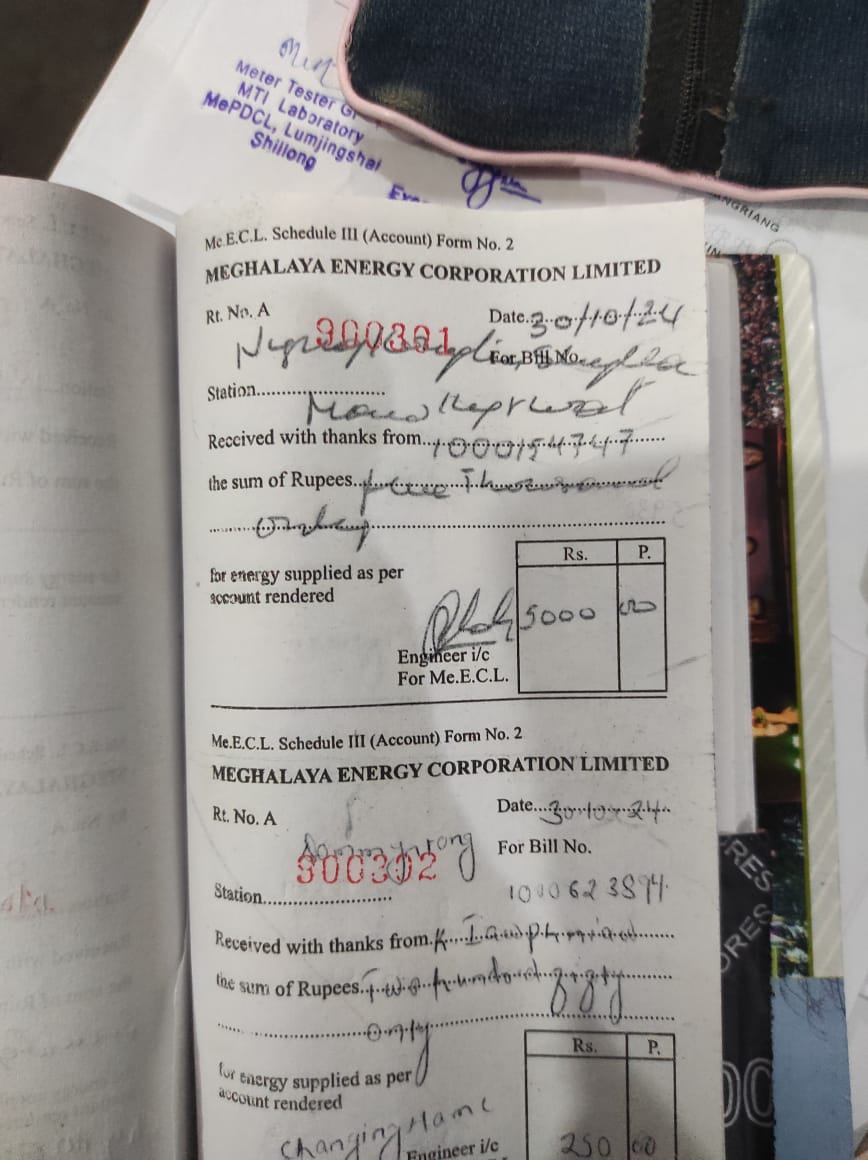 Meter Tester Gr
MTI Laboratory
MePDCL, Lumjingshai
Shillong
NGRIANG
Me.E.C.L. Schedule III (Account) Form No. 2
MEGHALAYA ENERGY CORPORATION LIMITED
Rt. No. A
900301
Date 30/10/24
For Bill No.
Station
Received with thanks from 1000154747
the sum of Rupees Five Thousand
only
Rs. P.
for energy supplied as per
account rendered
5000 00
Engineer i/c
For Me.E.C.L.
Me.E.C.L. Schedule III (Account) Form No. 2
MEGHALAYA ENERGY CORPORATION LIMITED
Rt. No. A
Date 30.10.24
900302
For Bill No.
Station
1000623894
Received with thanks from K.
the sum of Rupees Two hundred
only
Rs. P.
for energy supplied as per
account rendered
Changing Name
Engineer i/c
250 00
RES
ORES